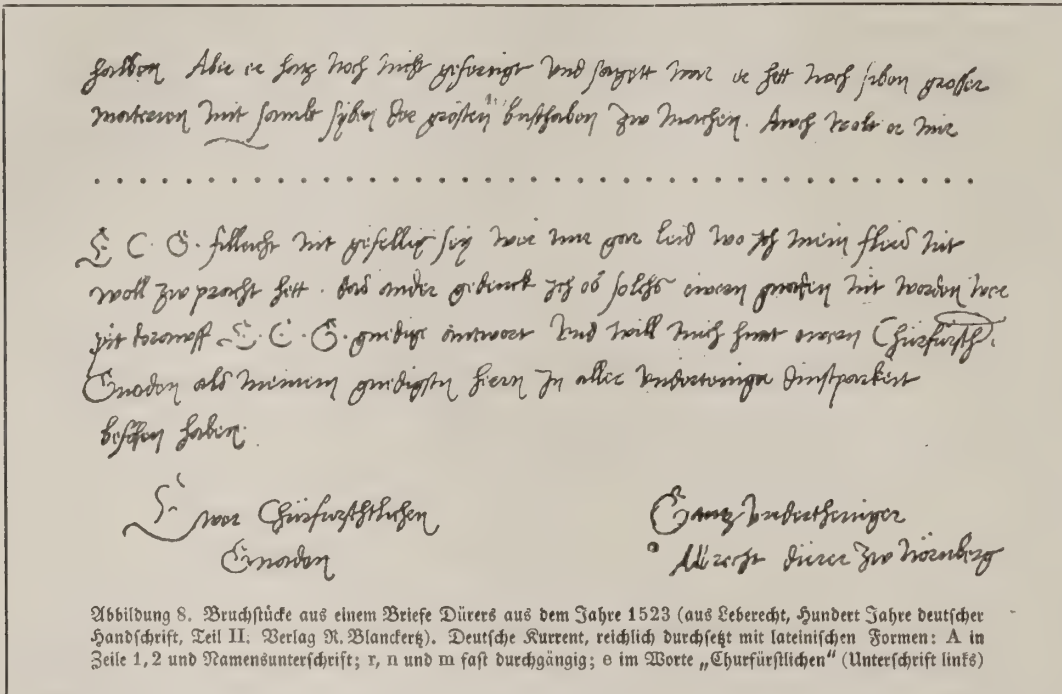 halben Aber er hatz noch nicht gefertigt vnd sagett mir er hett noch siben grosser
materien mit sambt syben der grösten busthaben zw machen. Auch wolt er mir
E C. G. filleicht nit gefellig sey wer mir gar leid wo jch mein fleis nit
woll zw pracht hett. das ander gedenck jch ob solchs ewern gnaden nit worden wer
pit dorawff E. C. G. gnedige antwort vnd will mich ewern Churfürsth.
Gnaden als meinem gnedigstn hern jn aller vnderteniger dinstparkeit
haben.
Ewer Churfursthlichen
Gnaden
Gantz vndertheniger
Albrecht Dürer zw Nörnberg
Abbildung 8. Bruchstücke aus einem Briefe Dürers aus dem Jahre 1523 (aus Leberecht, Hundert Jahre deutscher
Handschrift, Teil II. Verlag R. Blanckertz). Deutsche Kurrent, reichlich durchsetzt mit lateinischen Formen: A in
Zeile 1, 2 und Namensunterschrift; r, n und m fast durchgängig; e im Worte „Churfürstlichen“ (Unterschrift links)